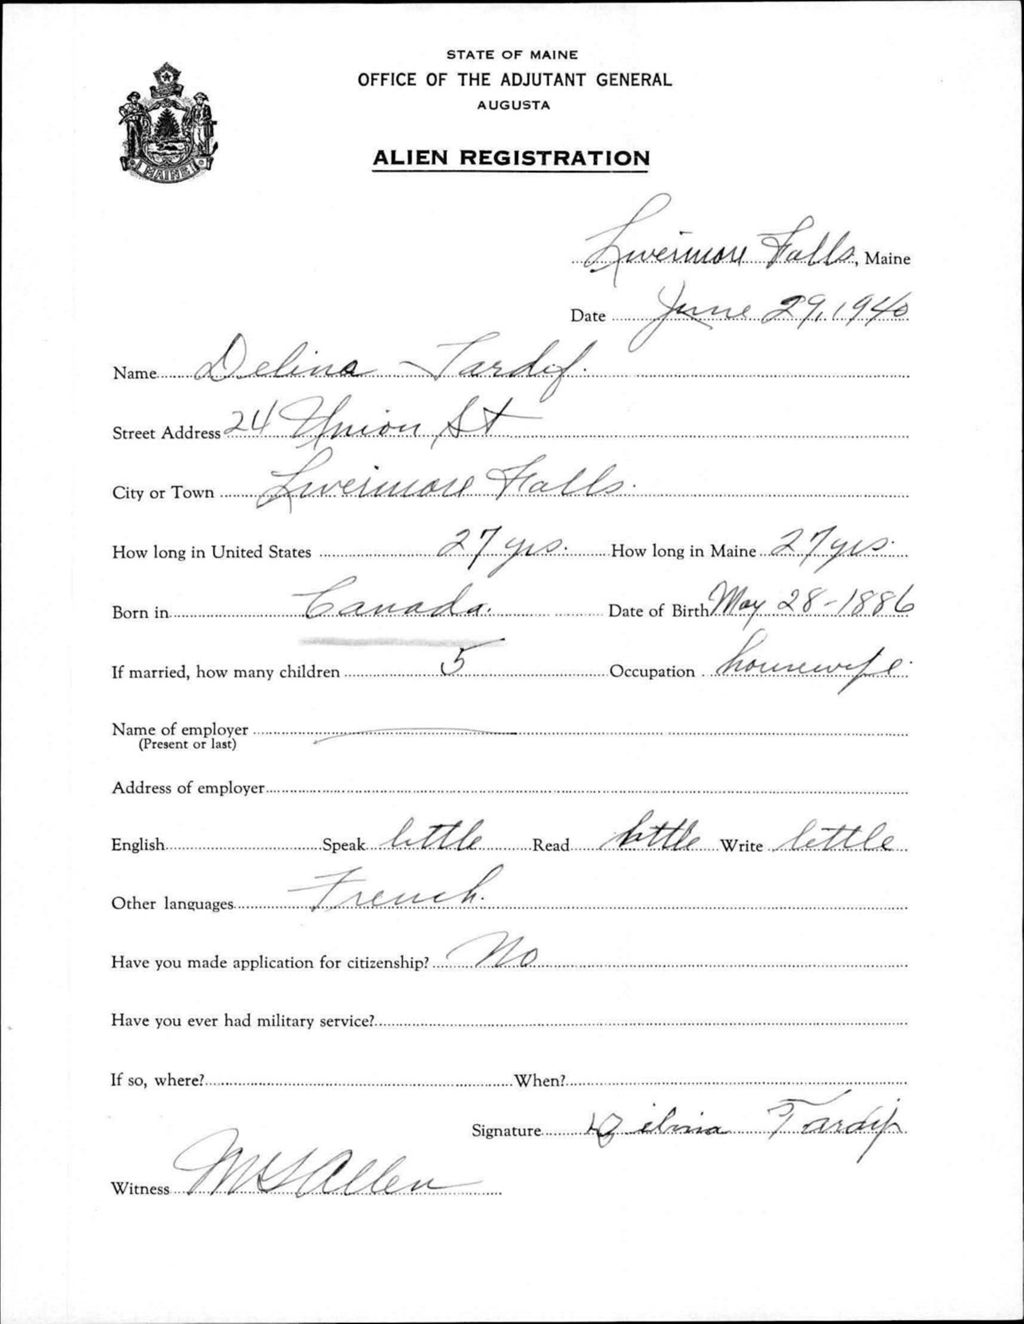 STATE OF MAINE
OFFICE OF THE ADJUTANT GENERAL
AUGUSTA
ALIEN REGISTRATION
MAINE
Livermore Falls, Maine
Date June 29, 1940
Name Delina Tardif.
Street Address 24 Union St
City or Town Livermore Falls.
How long in United States 27 yrs. How long in Maine 27 yrs.
Born in Canada. Date of Birth May 28-1886
If married, how many children 5 Occupation housewife.
Name of employer
(Present or last)
Address of employer
English Speak little Read little Write little
Other languages French.
Have you made application for citizenship? No
Have you ever had military service?
If so, where? When?
Signature Tardif
Witness Allen